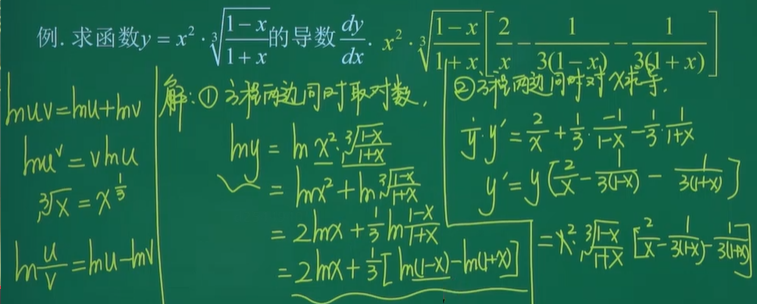 例. 求函数y = x²·∛((1−x)/(1+x))的导数dy/dx. x²·∛((1−x)/(1+x))[2/x − 1/(3(1−x)) − 1/(3(1+x))]
lnuv=lnu+lnv
lnu^v=vlnu
∛x=x^(1/3)
ln(u/v)=lnu-lnv
解:①方程两边同时取对数,
lny = ln x²·∛((1-x)/(1+x))
= lnx²+ln∛((1-x)/(1+x))
= 2lnx+(1/3)ln((1-x)/(1+x))
= 2lnx+(1/3)[ln(1-x)-ln(1+x)]
②方程两边同时对x求导.
(1/y)·y'=2/x+(1/3)·(-1)/(1-x)-(1/3)·1/(1+x)
y'=y[2/x-1/(3(1-x))-1/(3(1+x))]
=x²·∛((1-x)/(1+x))[2/x-1/(3(1-x))-1/(3(1+x))]